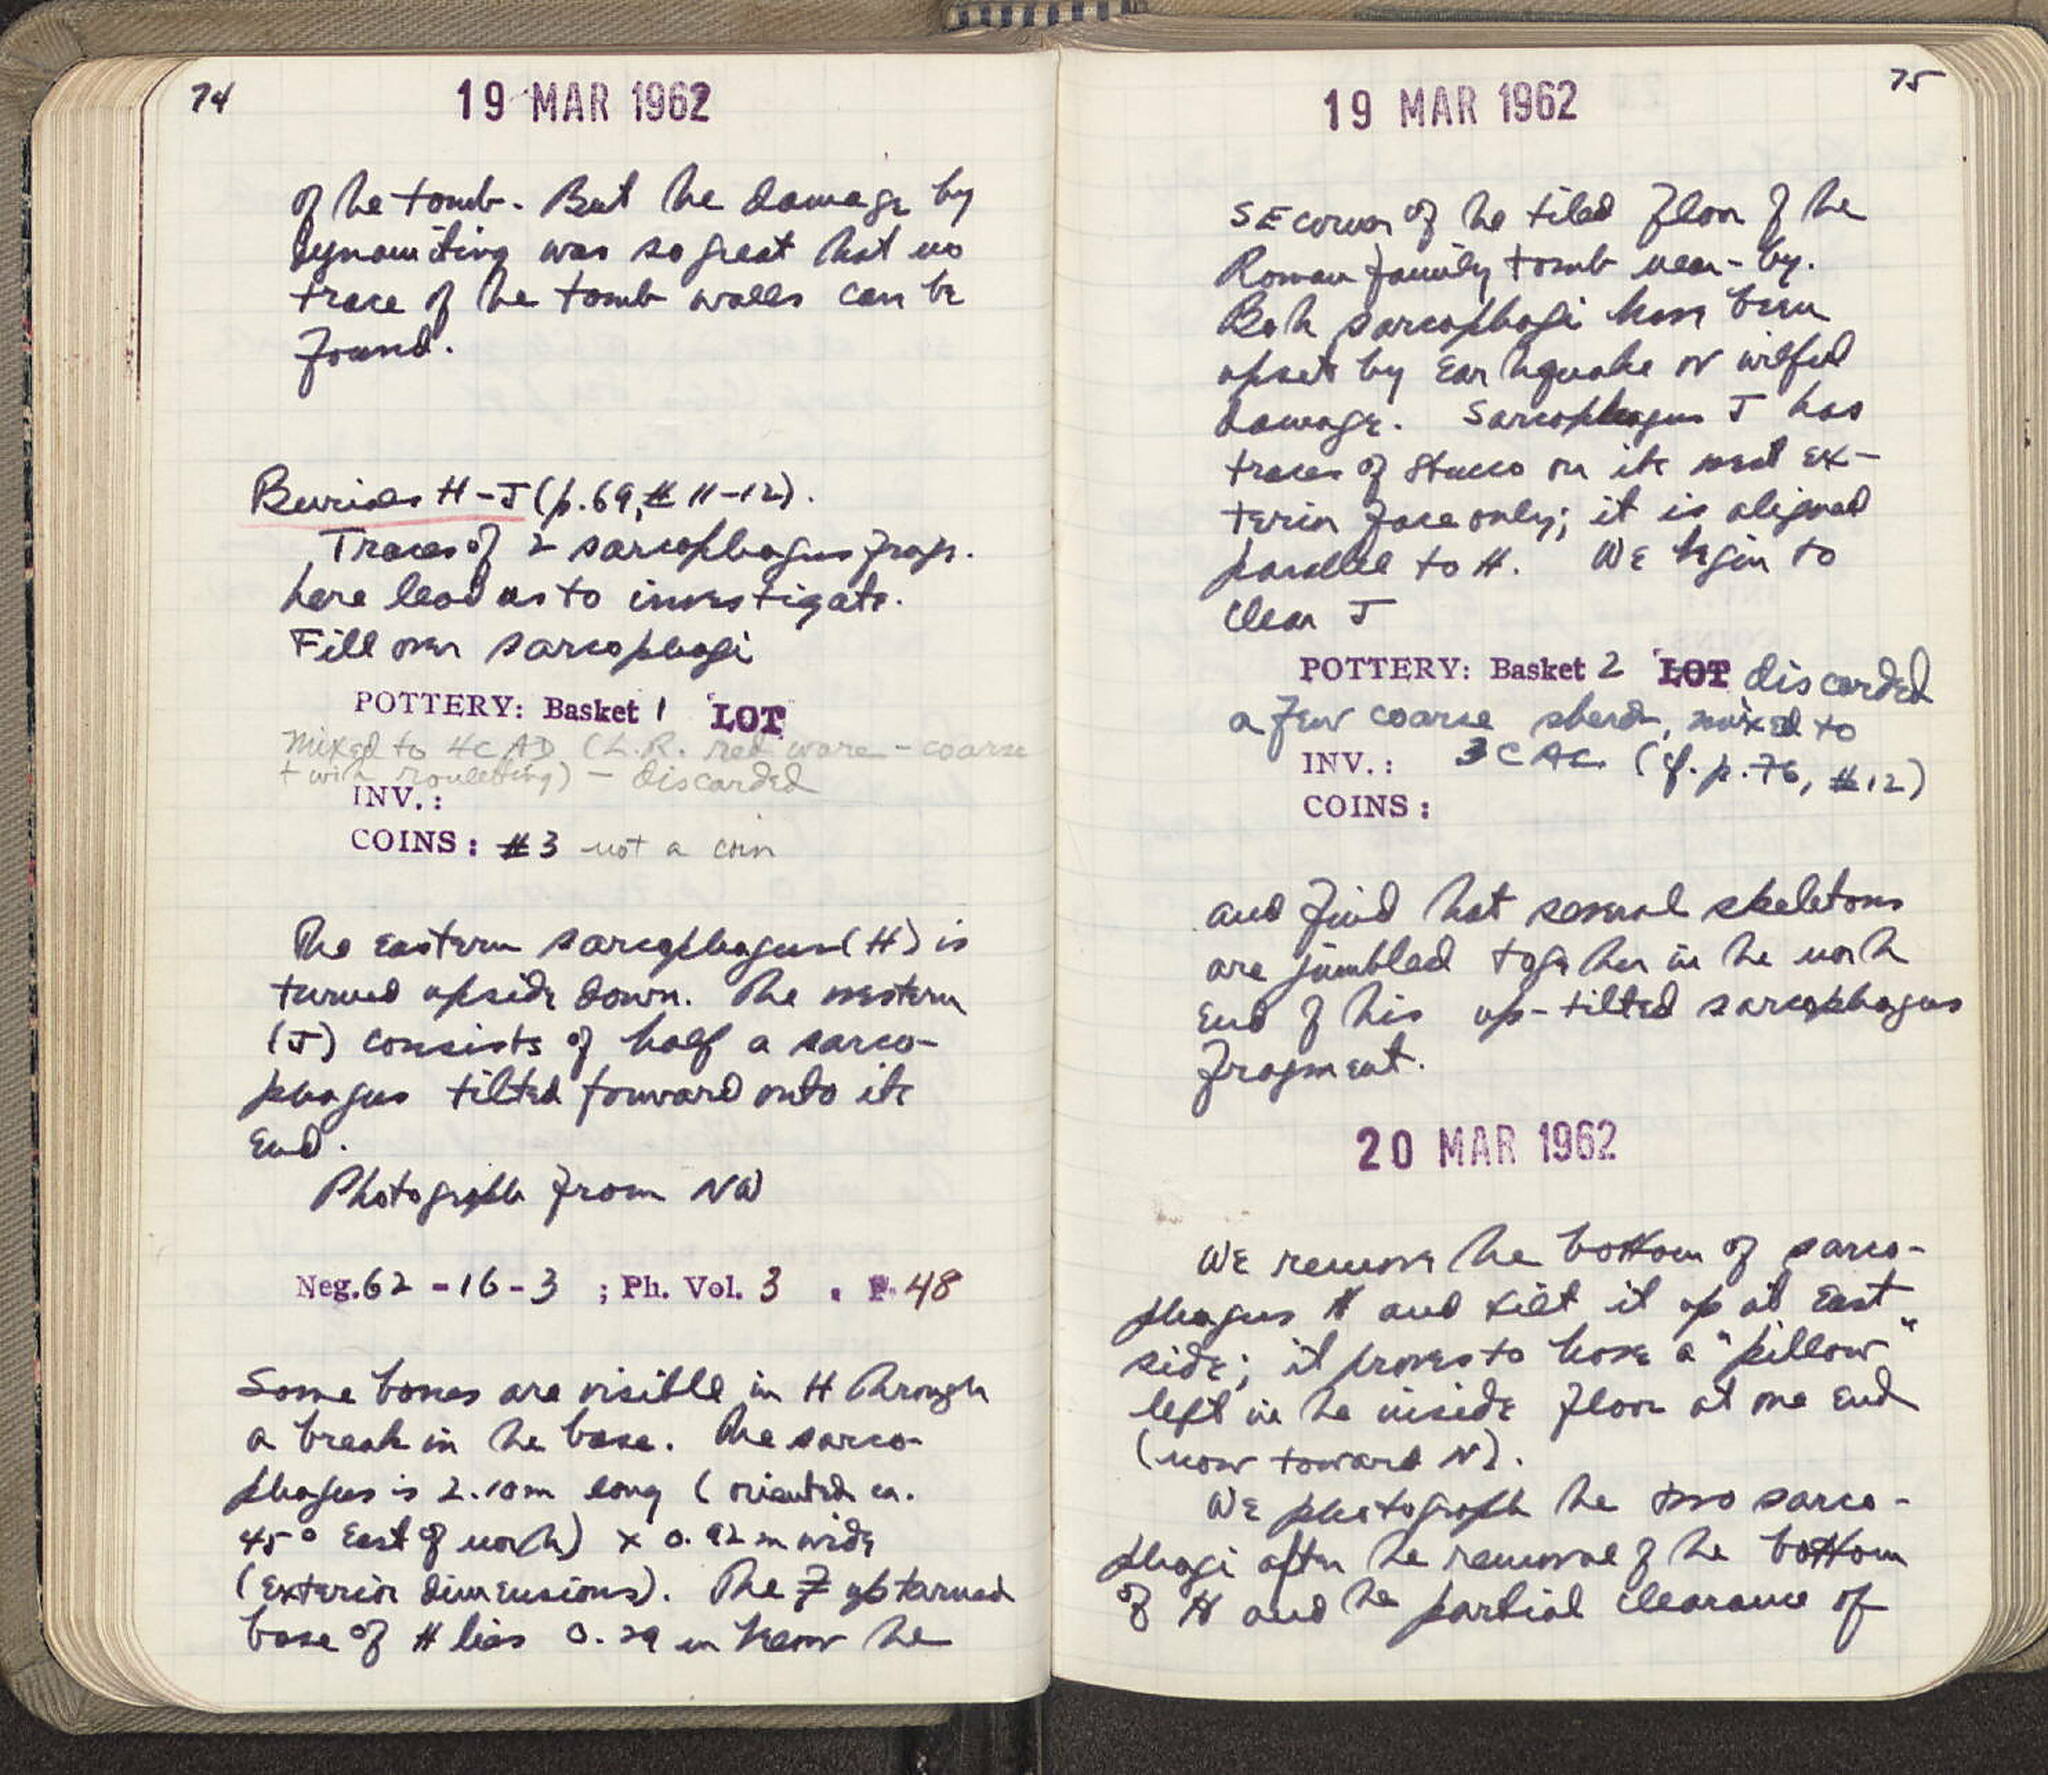 74
19 MAR 1962
of the tomb. But the damage by
dynamiting was so great that no
trace of the tomb walls can be
found.
Burials H-J (p.69, # 11-12).
Traces of 2 sarcophagus frags.
here lead us to investigate.
Fill over sarcophagi
POTTERY: Basket 1 LOT
Mixed to 4C AD (L.R. red ware - coarse
+ with rouletting) - discarded
INV.:
COINS: #3 not a coin
The eastern sarcophagus (H) is
turned upside down. The western
(J) consists of half a sarco-
phagus tilted forward onto its
end.
Photograph from NW
Neg. 62 - 16 - 3 ; Ph. Vol. 3 . P. 48
Some bones are visible in H through
a break in the base. The sarco-
phagus is 2.10m long (oriented ca.
45° East of north) x 0.92 m wide
(exterior dimensions). The upturned
base of H lies 0.29 m below the
75
19 MAR 1962
SE corner of the tiled floor of the
Roman family tomb near-by.
Both sarcophagi have been
upset by earthquake or wilful
damage. Sarcophagus J has
traces of stucco on its west ex-
terior face only; it is aligned
parallel to H. We begin to
clear J
POTTERY: Basket 2 LOT discarded
a few coarse sherds, mixed to
INV.: 3 C AC (cf. p. 76, #12)
COINS:
and find that several skeletons
are jumbled together in the north
end of this up-tilted sarcophagus
fragment.
20 MAR 1962
We remove the bottom of sarco-
phagus H and tilt it up at East
side; it proves to have a "pillow"
left in the inside floor at one end
(now toward N).
We photograph the two sarco-
phagi after the removal of the bottom
of H and the partial clearance of